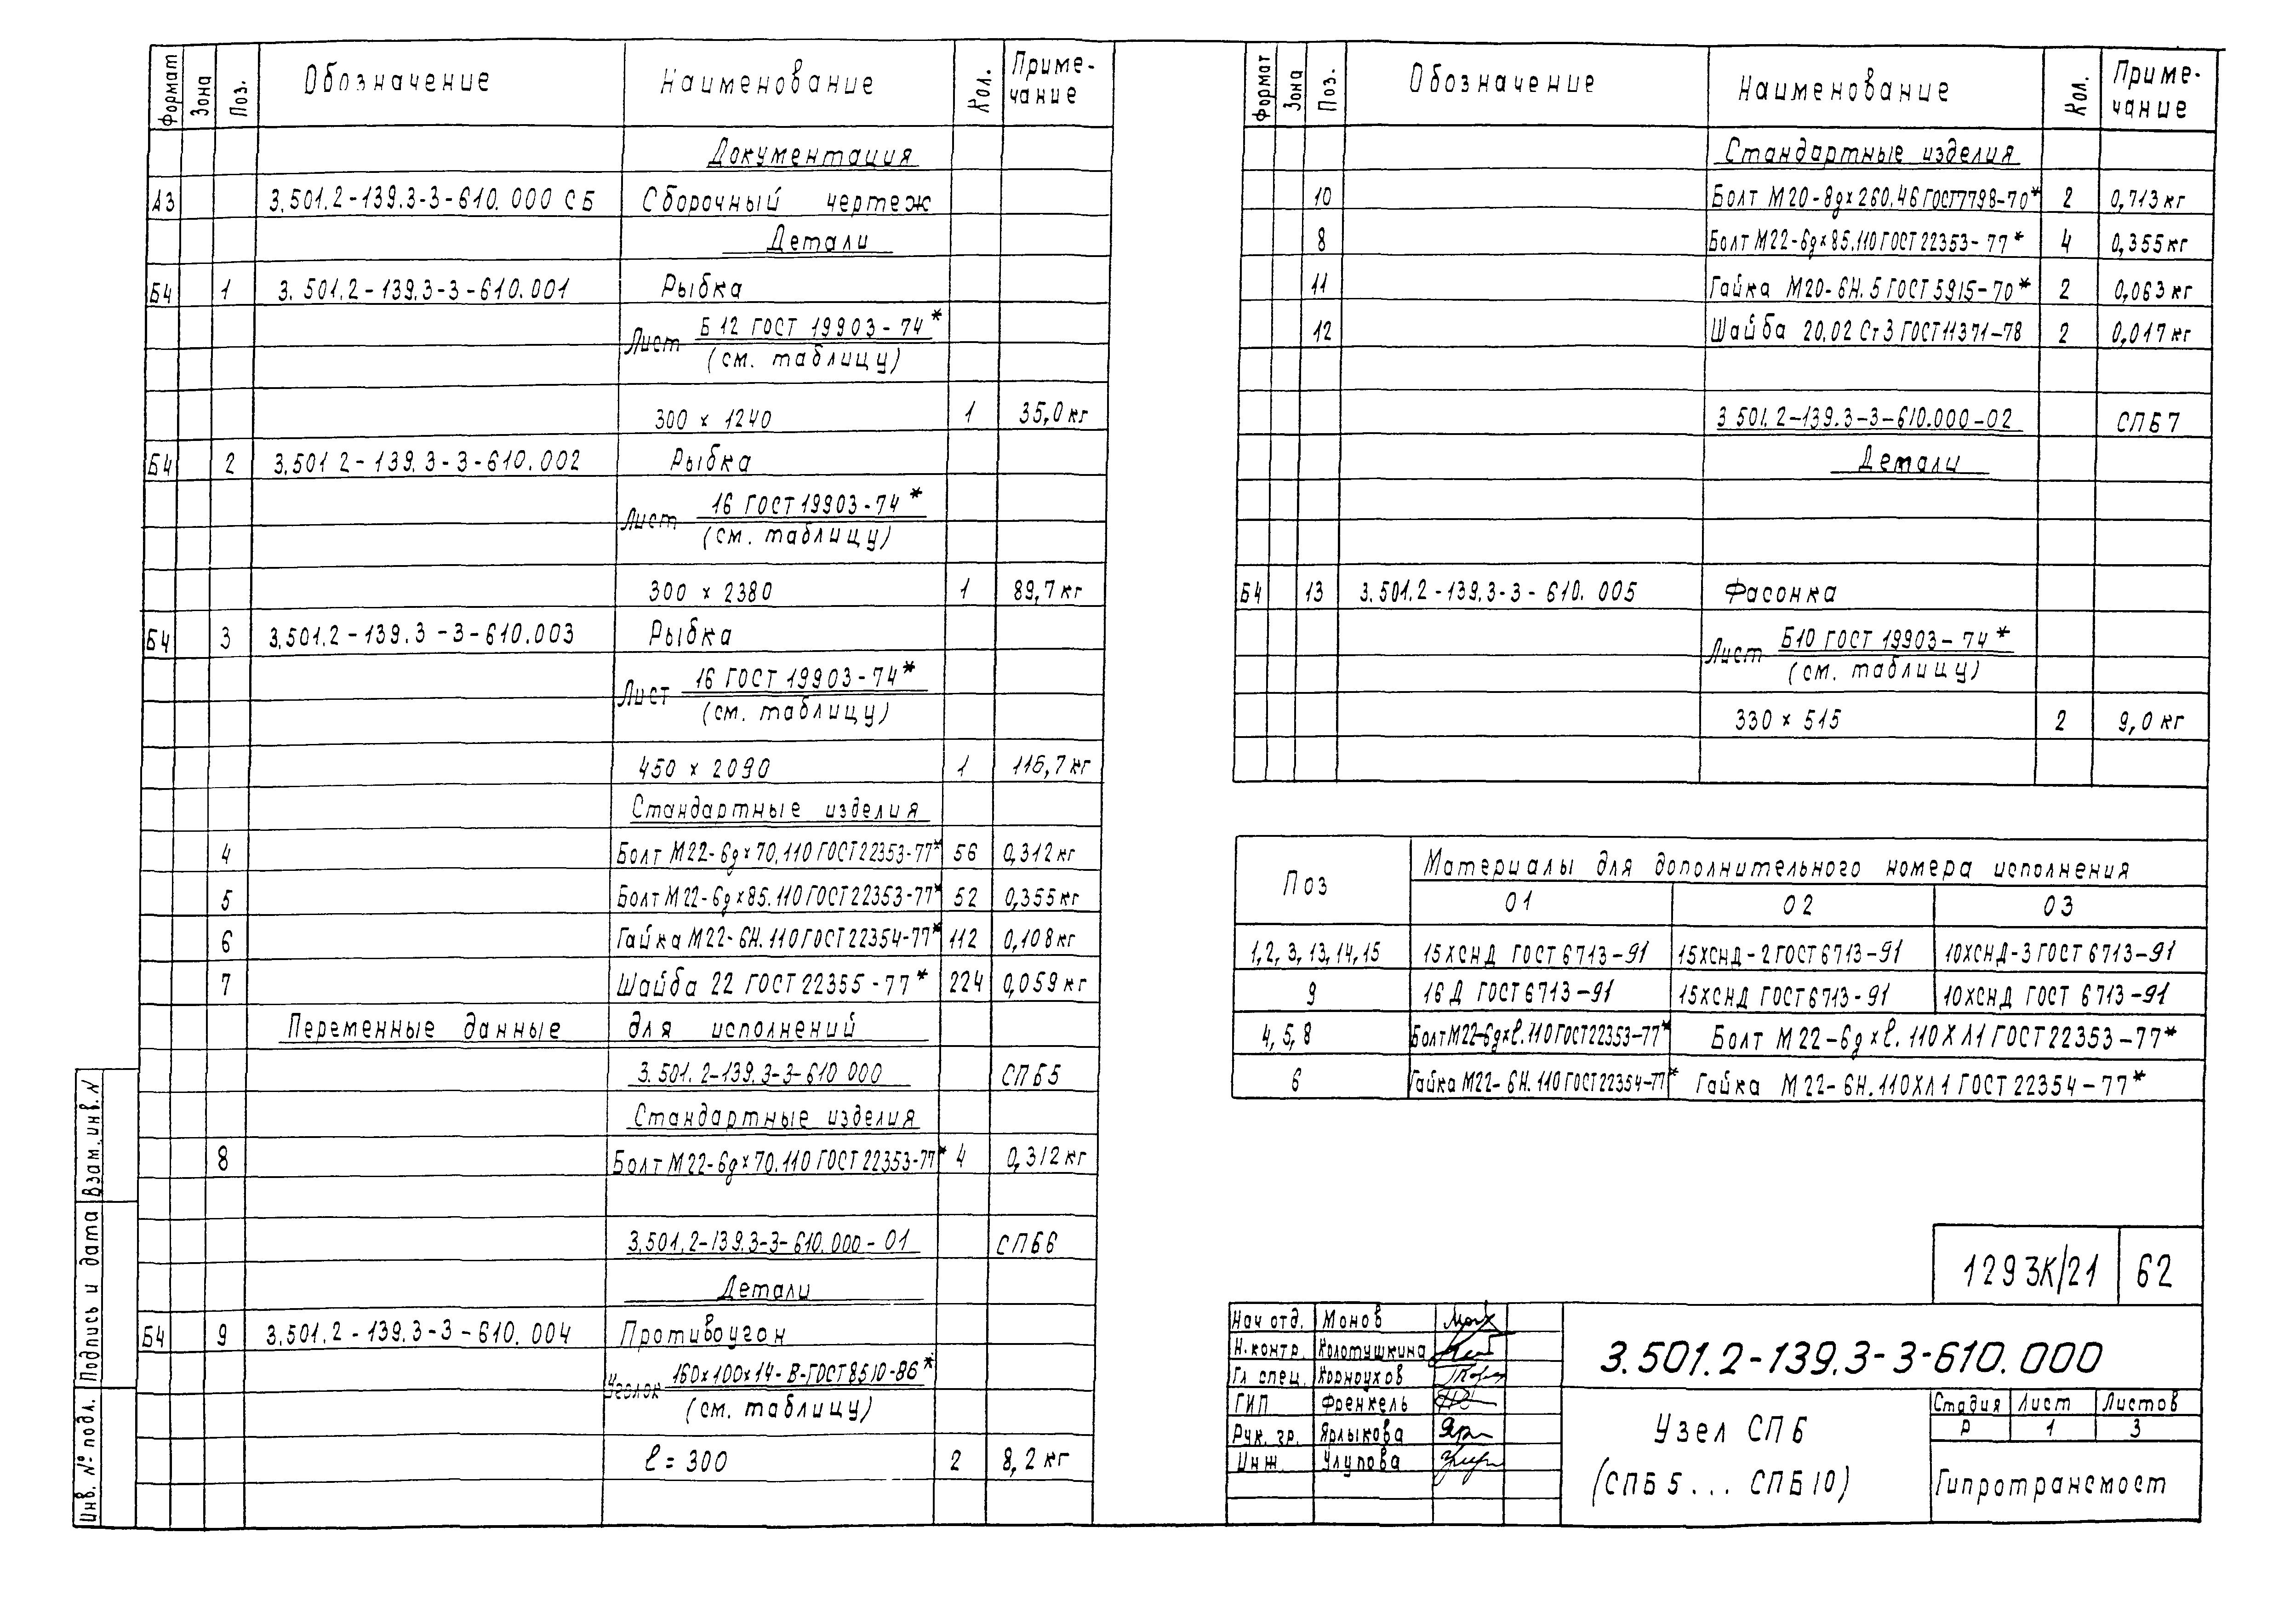 Формат Зона Поз. Обозначение Наименование Кол. Приме-
чание
Документация
А3 3.501.2-139.3-3-610.000 СБ Сборочный чертеж
Детали
Б4 1 3.501.2-139.3-3-610.001 Рыбка
Лист Б 12 ГОСТ 19903-74*
(см. таблицу)
300 × 1240 1 35,0 кг
Б4 2 3.501 2-139.3-3-610.002 Рыбка
Лист 16 ГОСТ 19903-74*
(см. таблицу)
300 × 2380 1 89,7 кг
Б4 3 3.501.2-139.3-3-610.003 Рыбка
Лист 16 ГОСТ 19903-74*
(см. таблицу)
450 × 2090 1 116,7 кг
Стандартные изделия
4 Болт М22-6g×70.110 ГОСТ 22353-77* 56 0,312 кг
5 Болт М22-6g×85.110 ГОСТ 22353-77* 52 0,355 кг
6 Гайка М22-6Н.110 ГОСТ 22354-77* 112 0,108 кг
7 Шайба 22 ГОСТ 22355-77* 224 0,059 кг
Переменные данные для исполнений
3.501.2-139.3-3-610 000 СПБ5
Стандартные изделия
8 Болт М22-6g×70.110 ГОСТ 22353-77* 4 0,312 кг
3.501.2-139.3-3-610.000-01 СПБ6
Детали
Б4 9 3.501.2-139.3-3-610.004 Противоугон
Уголок 160×100×14-В-ГОСТ 8510-86*
(см. таблицу)
ℓ = 300 2 8,2 кг
Формат Зона Поз. Обозначение Наименование Кол. Приме-
чание
Стандартные изделия
10 Болт М20-8g×260.46 ГОСТ 7798-70* 2 0,713 кг
8 Болт М22-6g×85.110 ГОСТ 22353-77* 4 0,355 кг
11 Гайка М20-6Н.5 ГОСТ 5915-70* 2 0,063 кг
12 Шайба 20.02 Ст3 ГОСТ 11371-78 2 0,017 кг
3 501.2-139.3-3-610.000-02 СПБ7
Детали
Б4 13 3.501.2-139.3-3-610.005 Фасонка
Лист Б10 ГОСТ 19903-74*
(см. таблицу)
330 × 515 2 9,0 кг
Поз Материалы для дополнительного номера исполнения
01 02 03
1, 2, 3, 13, 14, 15 15ХСНД ГОСТ 6713-91 15ХСНД-2 ГОСТ 6713-91 10ХСНД-3 ГОСТ 6713-91
9 16Д ГОСТ 6713-91 15ХСНД ГОСТ 6713-91 10ХСНД ГОСТ 6713-91
4, 5, 8 Болт М22-6g×ℓ.110 ГОСТ 22353-77* Болт М22-6g×ℓ.110ХЛ1 ГОСТ 22353-77*
6 Гайка М22-6Н.110 ГОСТ 22354-77* Гайка М22-6Н.110ХЛ1 ГОСТ 22354-77*
1293К/21 62
Нач отд. Монов
Н.контр. Колотушкина
Гл спец. Корноухов
ГИП Френкель
Рук. гр. Ярлыкова
Инж. Улупова
3.501.2-139.3-3-610.000
Узел СПБ
(СПБ5 ... СПБ10)
Стадия Лист Листов
Р 1 3
Гипротрансмост
Инв. № подл. Подпись и дата Взам. инв. N